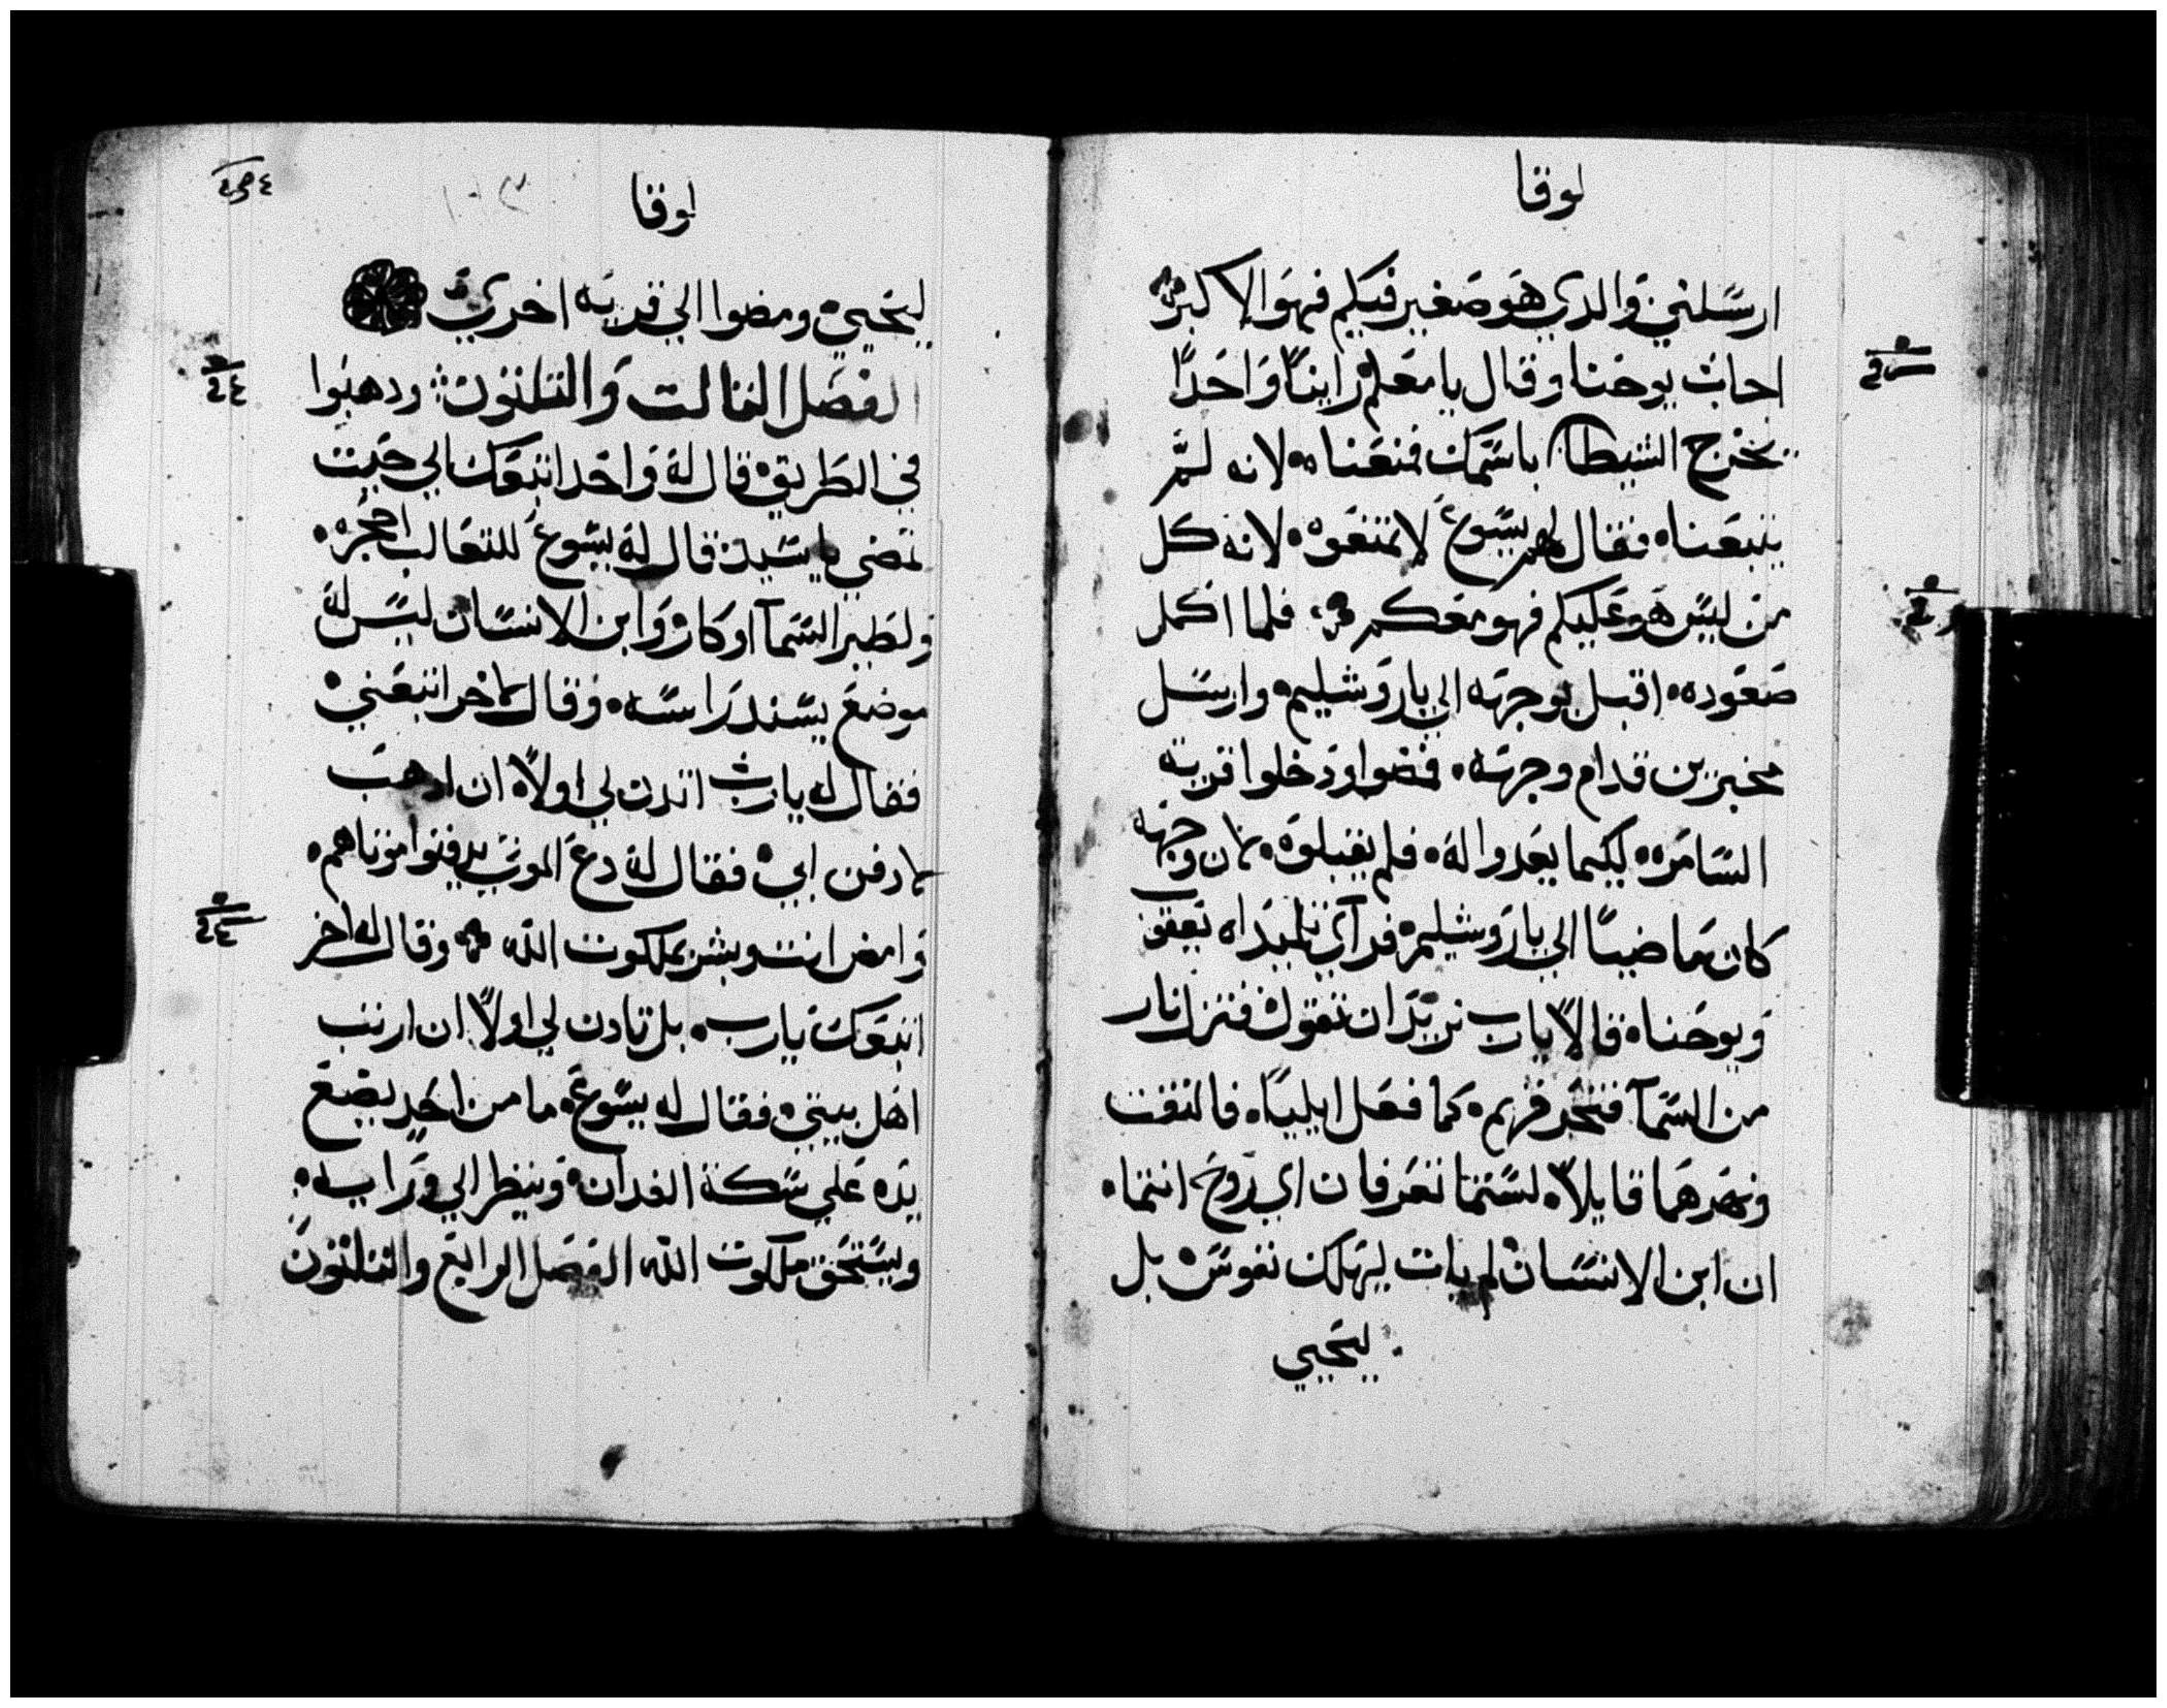 لوقا
ارسلني والدي هو صغير فيكم فهو الاكبر
احاب يوحنا وقال يا معلم راينا واحدًا
يخرج الشيطا باسمك فمنعناه لانه لم
يتبعنا فقال لهم يسوع لا تمنعوه لانه كل
من ليس هو عليكم فهو معكم فلما اكمل
صعوده اقبل بوجهه الي ياروشليم وارسل
مخبرين قدام وجهه فمضوا ودخلوا قرية
السامره ليكيما يعدوا له فلم يقبلوه لان وجهه
كان ماضيًا الي ياروشليم فراي تلميداه يعقوب
ويوحنا قالا يارب تريد ان نقول فتنزل نار
من السمآ فتحرقهم كما فعل ايليا فالتفت
ونهرهما قايلًا لستما تعرفان اي روح انتما
ان ابن الانسان لم يات ليهلك نفوس بل
ليحيي
لوقا
١٠٣
ليحيي ومضوا الي قريه اخري
الفصل الثالت والثلثون ودهبوا
في الطريق قال له واحد اتبعك الي حيت
تمضي يا سيد قال له يسوع للثعالب احجره
ولطير السمآ اوكار وابن الانسان ليس له
موضع يسند راسه وقال لاخر اتبعني
فقال له يارب اتدن لي اولًا ان ادهب
لادفن ابي فقال له دع الموتي يدفنوا موتاهم
وامض انت وبشر بملكوت الله وقال له اخر
اتبعك يارب بل تادن لي اولًا ان ارتب
اهل بيتي فقال له يسوع ما من احد يضع
يده علي سكة الفدان وينظر الي ورايه
ويستحق ملكوت الله الفصل الرابع والثلثون